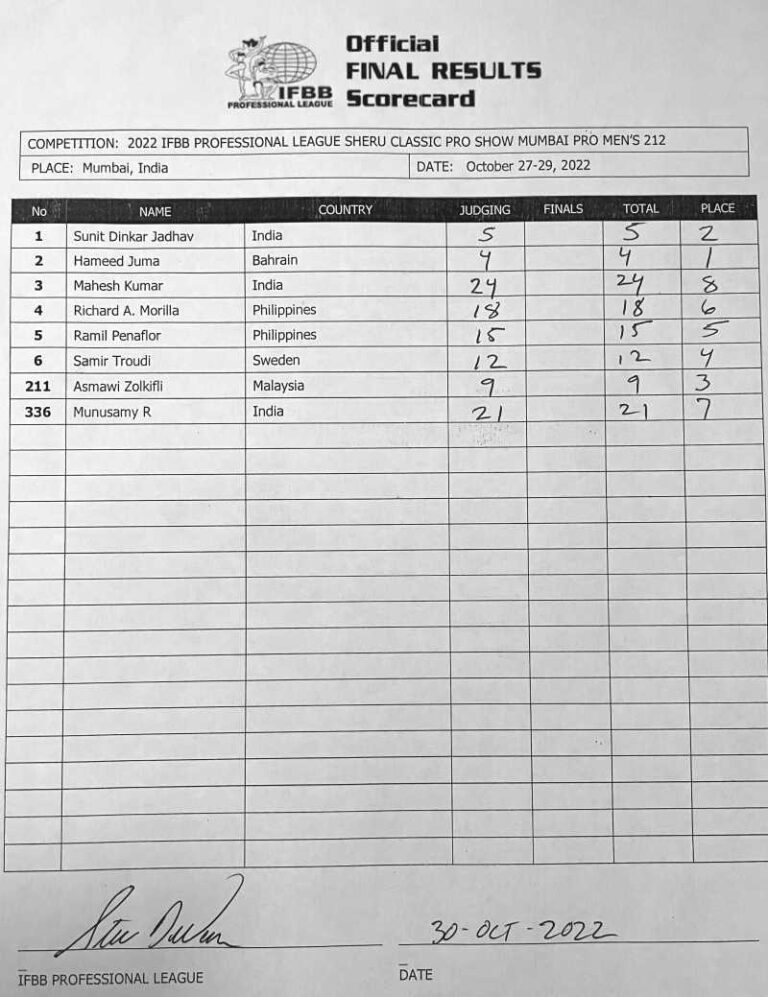 Official
FINAL RESULTS
Scorecard
IFBB
PROFESSIONAL LEAGUE
COMPETITION: 2022 IFBB PROFESSIONAL LEAGUE SHERU CLASSIC PRO SHOW MUMBAI PRO MEN'S 212
PLACE: Mumbai, India DATE: October 27-29, 2022
No NAME COUNTRY JUDGING FINALS TOTAL PLACE
1 Sunit Dinkar Jadhav India 5 5 2
2 Hameed Juma Bahrain 4 4 1
3 Mahesh Kumar India 24 24 8
4 Richard A. Morilla Philippines 18 18 6
5 Ramil Penaflor Philippines 15 15 5
6 Samir Troudi Sweden 12 12 4
211 Asmawi Zolkifli Malaysia 9 9 3
336 Munusamy R India 21 21 7
30-OCT-2022
IFBB PROFESSIONAL LEAGUE DATE